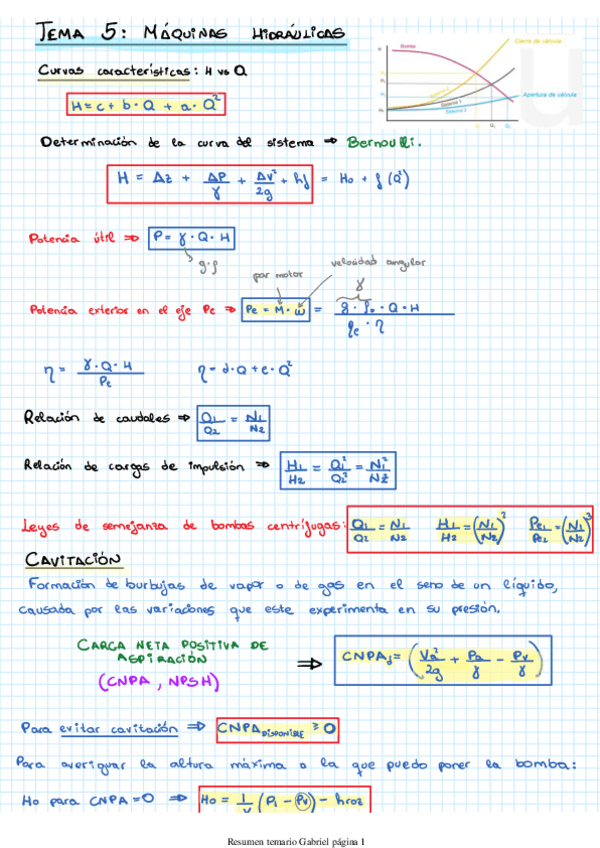 TEMA 5: MÁQUINAS HIDRÁULICAS
Curvas características: H vs Q
H = c + b · Q + a · Q²
Bomba
Cierre de válvula
Apertura de válvula
Sistema 1
Determinación de la curva del sistema ⇒ Bernoulli.
H = Δz + ΔP/γ + ΔV²/2g + hf = Ho + f (Q²)
Potencia útil ⇒ P = γ · Q · H
g·ρ
par motor
velocidad angular
γ
Potencia exterior en el eje Pe ⇒ Pe = M · ω =
η = γ·Q·H / Pe η = d·Q + e·Q²
Relación de caudales ⇒ Q1/Q2 = N1/N2
Relación de cargas de impulsión ⇒ H1/H2 = Q1²/Q2² = N1²/N2²
Leyes de semejanza de bombas centrífugas: Q1/Q2 = N1/N2 H1/H2 = (N1/N2)² Pe1/Pe2 = (N1/N2)³
CAVITACIÓN
Formación de burbujas de vapor o de gas en el seno de un líquido,
causada por las variaciones que este experimenta en su presión.
CARGA NETA POSITIVA DE
ASPIRACIÓN
(CNPA, NPSH)
⇒ CNPAd = (Va²/2g + Pa/γ − Pv/γ)
Para evitar cavitación ⇒ CNPA DISPONIBLE ≥ 0
Para averiguar la altura máxima a la que puedo poner la bomba:
Ho para CNPA = 0 ⇒ Ho = 1/γ (P1 − Pv) − hroz
Resumen temario Gabriel página 1